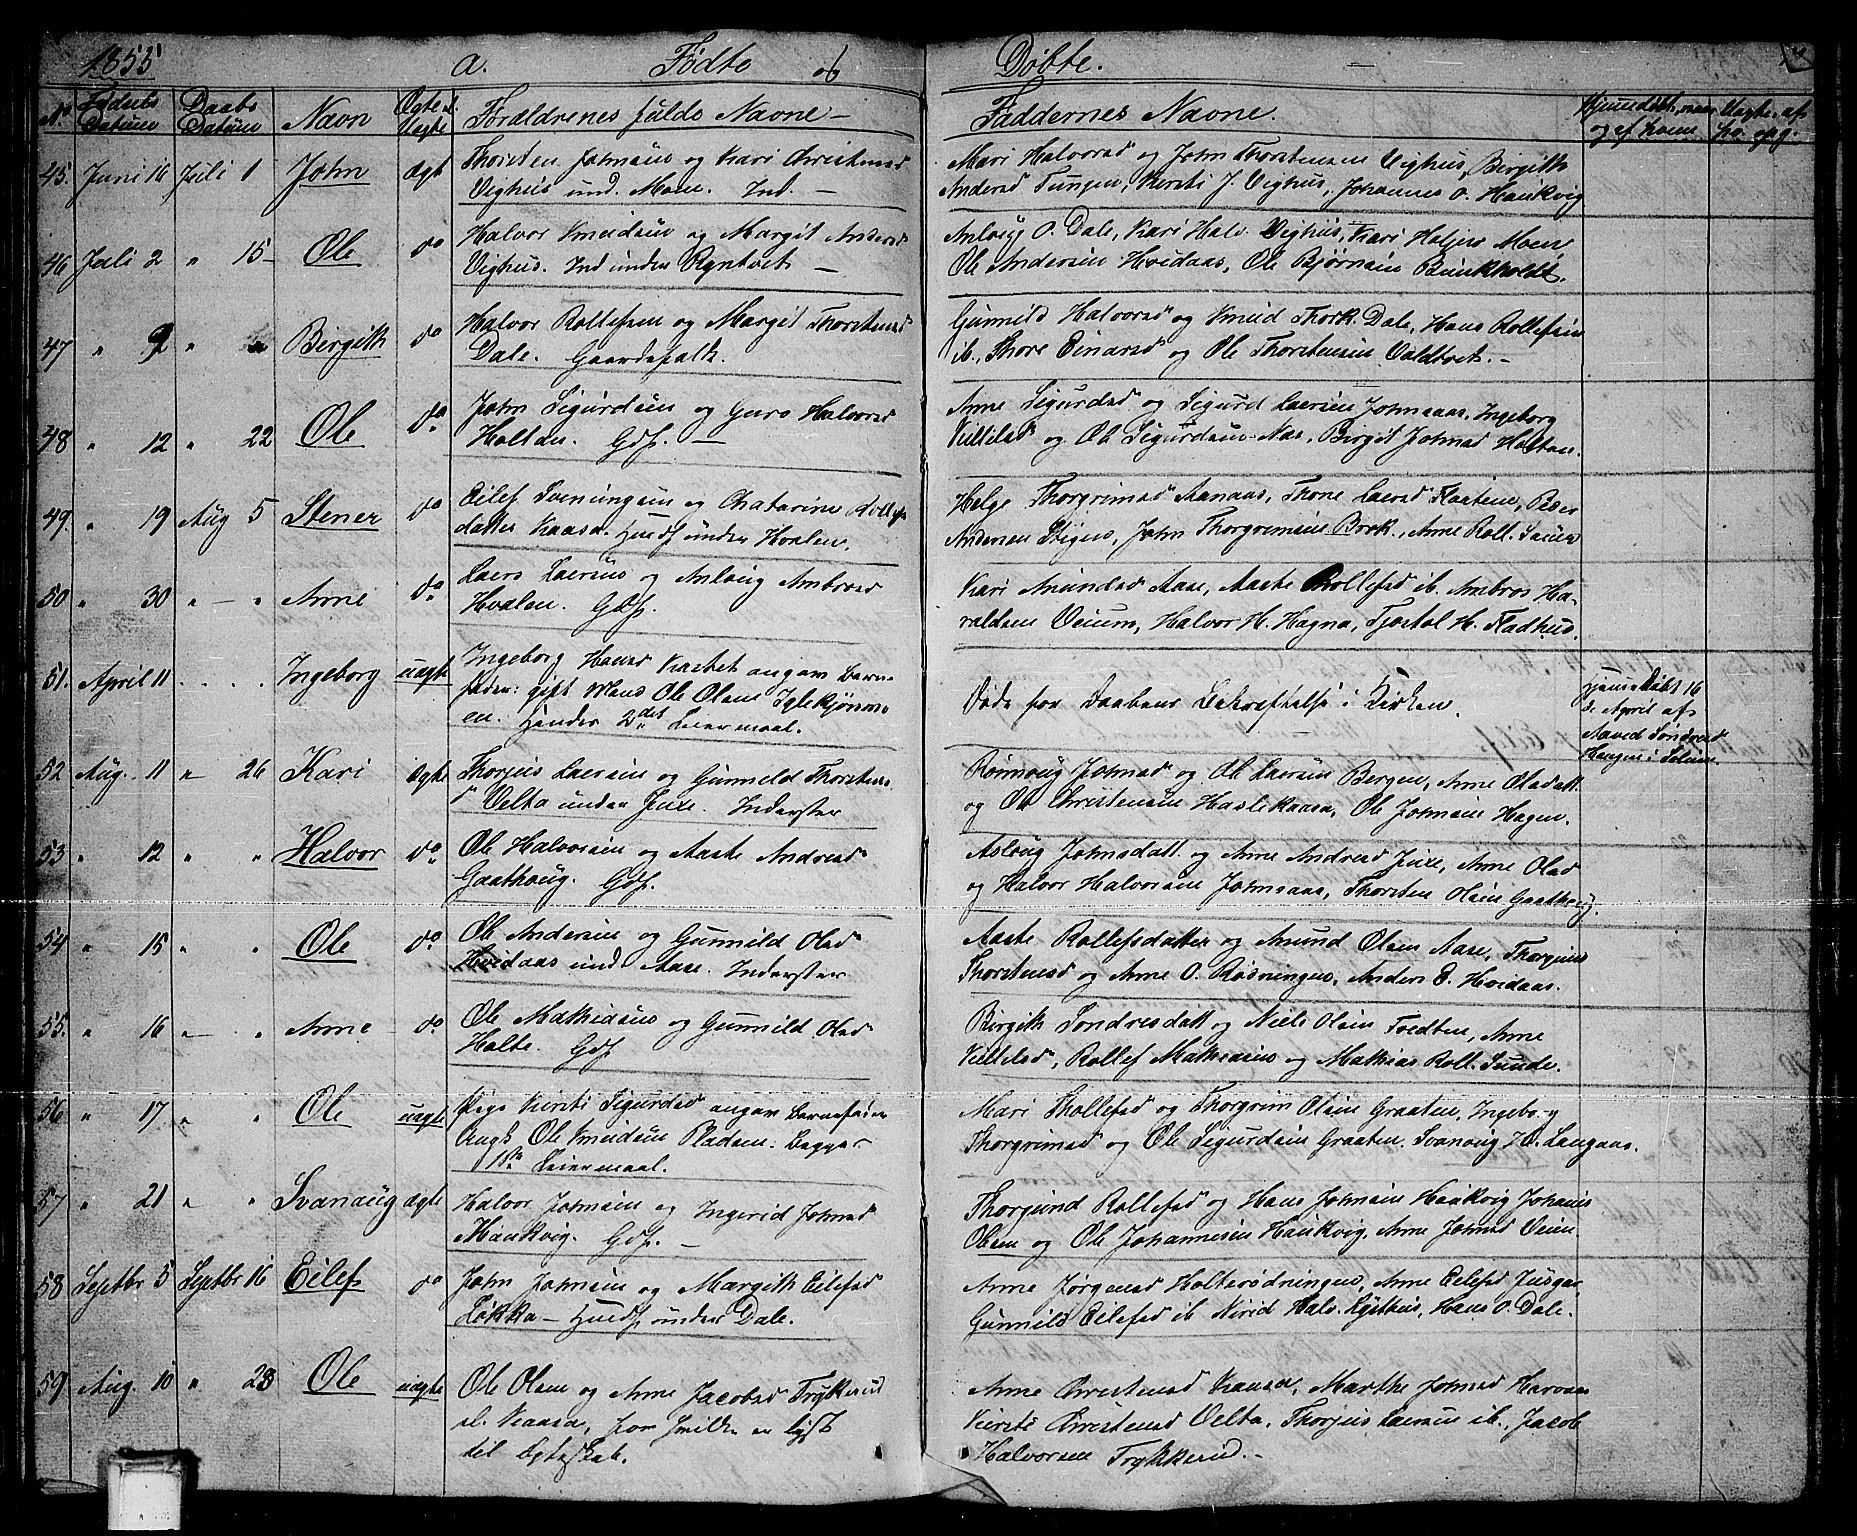 1855 a. Fødte og Døbte.
No Fødsels Datum Daabs Datum Navn Ægte el. Uægte Forældrenes fulde Navne — Faddernes Navne. Hjemmedøbt, naar og af hvem
45. Juni 16 Juli 1 John ægt Thorsten Johnsen og Kari Christensd
Vighus und. Moen. Ind. —
Mari Halvorsd og John Thorstensen Vighus, Birgith
Andersd Tungen, Kersti J. Vighus, Johannes O. Haukvig
46 Juli 2 " 15 Ole do Halvor Knudsen og Margit Andersd
Vighus. Ind under —
Anloug O. Dale, Kari Halv. Vighus, Kari Moen
Ole Andersen Hvidaas, Ole Bjørnsen Bunkholdt.
47 " 9 " " Birgith do Halvor Rollefsen og Margit Thorstensd
Dale. Gaardsfolk.
Gunnild Halvorsd og Knud Thork. Dale, Hans Rollefsen
ib., Thore Einarsd og Ole Thorstensen
48 " 12 " 22 Ole do John Sigurdsen og Guro Halvorsd
Holtan. Gdf. —
Anne Sigurdsd og Sigurd Laersen Johnsaas, Ingeborg
Kittilsd og Ole Sigurdsen Nas, Birgit Johnsd Holtan.
49. " 19 Aug 5 Stener do Eilef Sveningsen og Chatarine Rollefs
datter Kaasa. Husf under Hvalen.
Helge Thorgrimsd Aanaas, Thone Laersd Flaatene, Peder
Andersen Stigen, John Thorgrimsen Brok., Anne Roll.
50 " 30 " — " Anne do Laers Laersen og Anloug Ambrosd
Hvalen. Gdf.
Kari Amundsd Aase, Aaste Rollefsd ib. Ambros Ha-
raldsen Veium, Halvor H. Hagna, Tjostol H. Fladhus.
51. April 11 Ingeborg uægte Ingeborg Hansd Kastet angav Barne-
faderen: gift Mand Ole Olsen Iglekjønn-
en. Hendes 2det Leiermaal.
Døde før Daabens Bekræftelse i Kirken.
hjemmedøbt 16
de April af
Aavid Søndresd
Haugen i Solum
52 Aug. 11 " 26 Kari ægte Thorjus Laersen og Gunnild Thorstens
d Velta under Juxe. Inderster
Rønnoug Johnsd og Ole Laersen Bergen, Anne Olsdatt.
og Ole Christensen Haslekaasa, Ole Johnsen Hagen.
53 " 12 " " Halvor do Ole Halvorsen og Aaste Andresd
Gaathoug. Gdf.
Asloug Johnsdatt. og Anne Andresd Juxe, Anne Olsd
og Halvor Halvorsen Johnsaas, Thorsten Olsen Gaathoug.
54 " 15 " " Ole do Ole Andersen og Gunnild Olsd
Hvidaas und Aase. Inderster
Aaste Rollefsdatter og Amund Olsen Aase, Thorjuus
Thorstensd og Anne O. Røsningen, Anders E. Hvidaas.
55. " 16 " " Anne do Ole Mathiasen og Gunnild Olsd
Holte. Gdf
Birgith Søndresdatt og Niels Olsen Tvedten, Anne
Kittilsd, Rollef Mathiasen og Mathias Roll. Sunde.
56 " 17 " " Ole uægte Pige Kirsti Sigurdsd angav Barnefader
Ungk Ole Knudsen Pladsen. Begges
1ste Leiermaal.
Mari Thollefsd og Thorgrim Olsen Graaten, Ingeborg
Thorgrimsd og Ole Sigurdsen Graaten. Svanoug H. Langaas.
57 " 21 " " Svanaug ægte Halvor Johnsen og Ingerid Johnsd
Haukvig. Gdf. —
Thorjund Rollefsd og Hans Johnsen Haukvig, Johanis
Olsen og Ole Johannesen Haukvig, Anne Johnsd Veien
58 Septbr 5 Septbr 16 Eilef do John Johnsen og Margith Eilefsd
Løkka — Husf under Dale.
Anne Jørgensd Holterødningen, Anne Eilefsd
Gunnild Eilefsd ib. Halv. Lysthus, Hans O. Dale.
59 Aug. 10 " 23 Ole uægte Ole Olsen og Anne Jacobsd Trykkerud
el. Kaasa, har Trolov. og lyst
til Ægteskab.
Anne Christensd Kaasa, Marthe Johnsd
Kirsti Christensd Velta, Thorjus Laersen ib., Jacob
Halvorsen Trykkerud. —